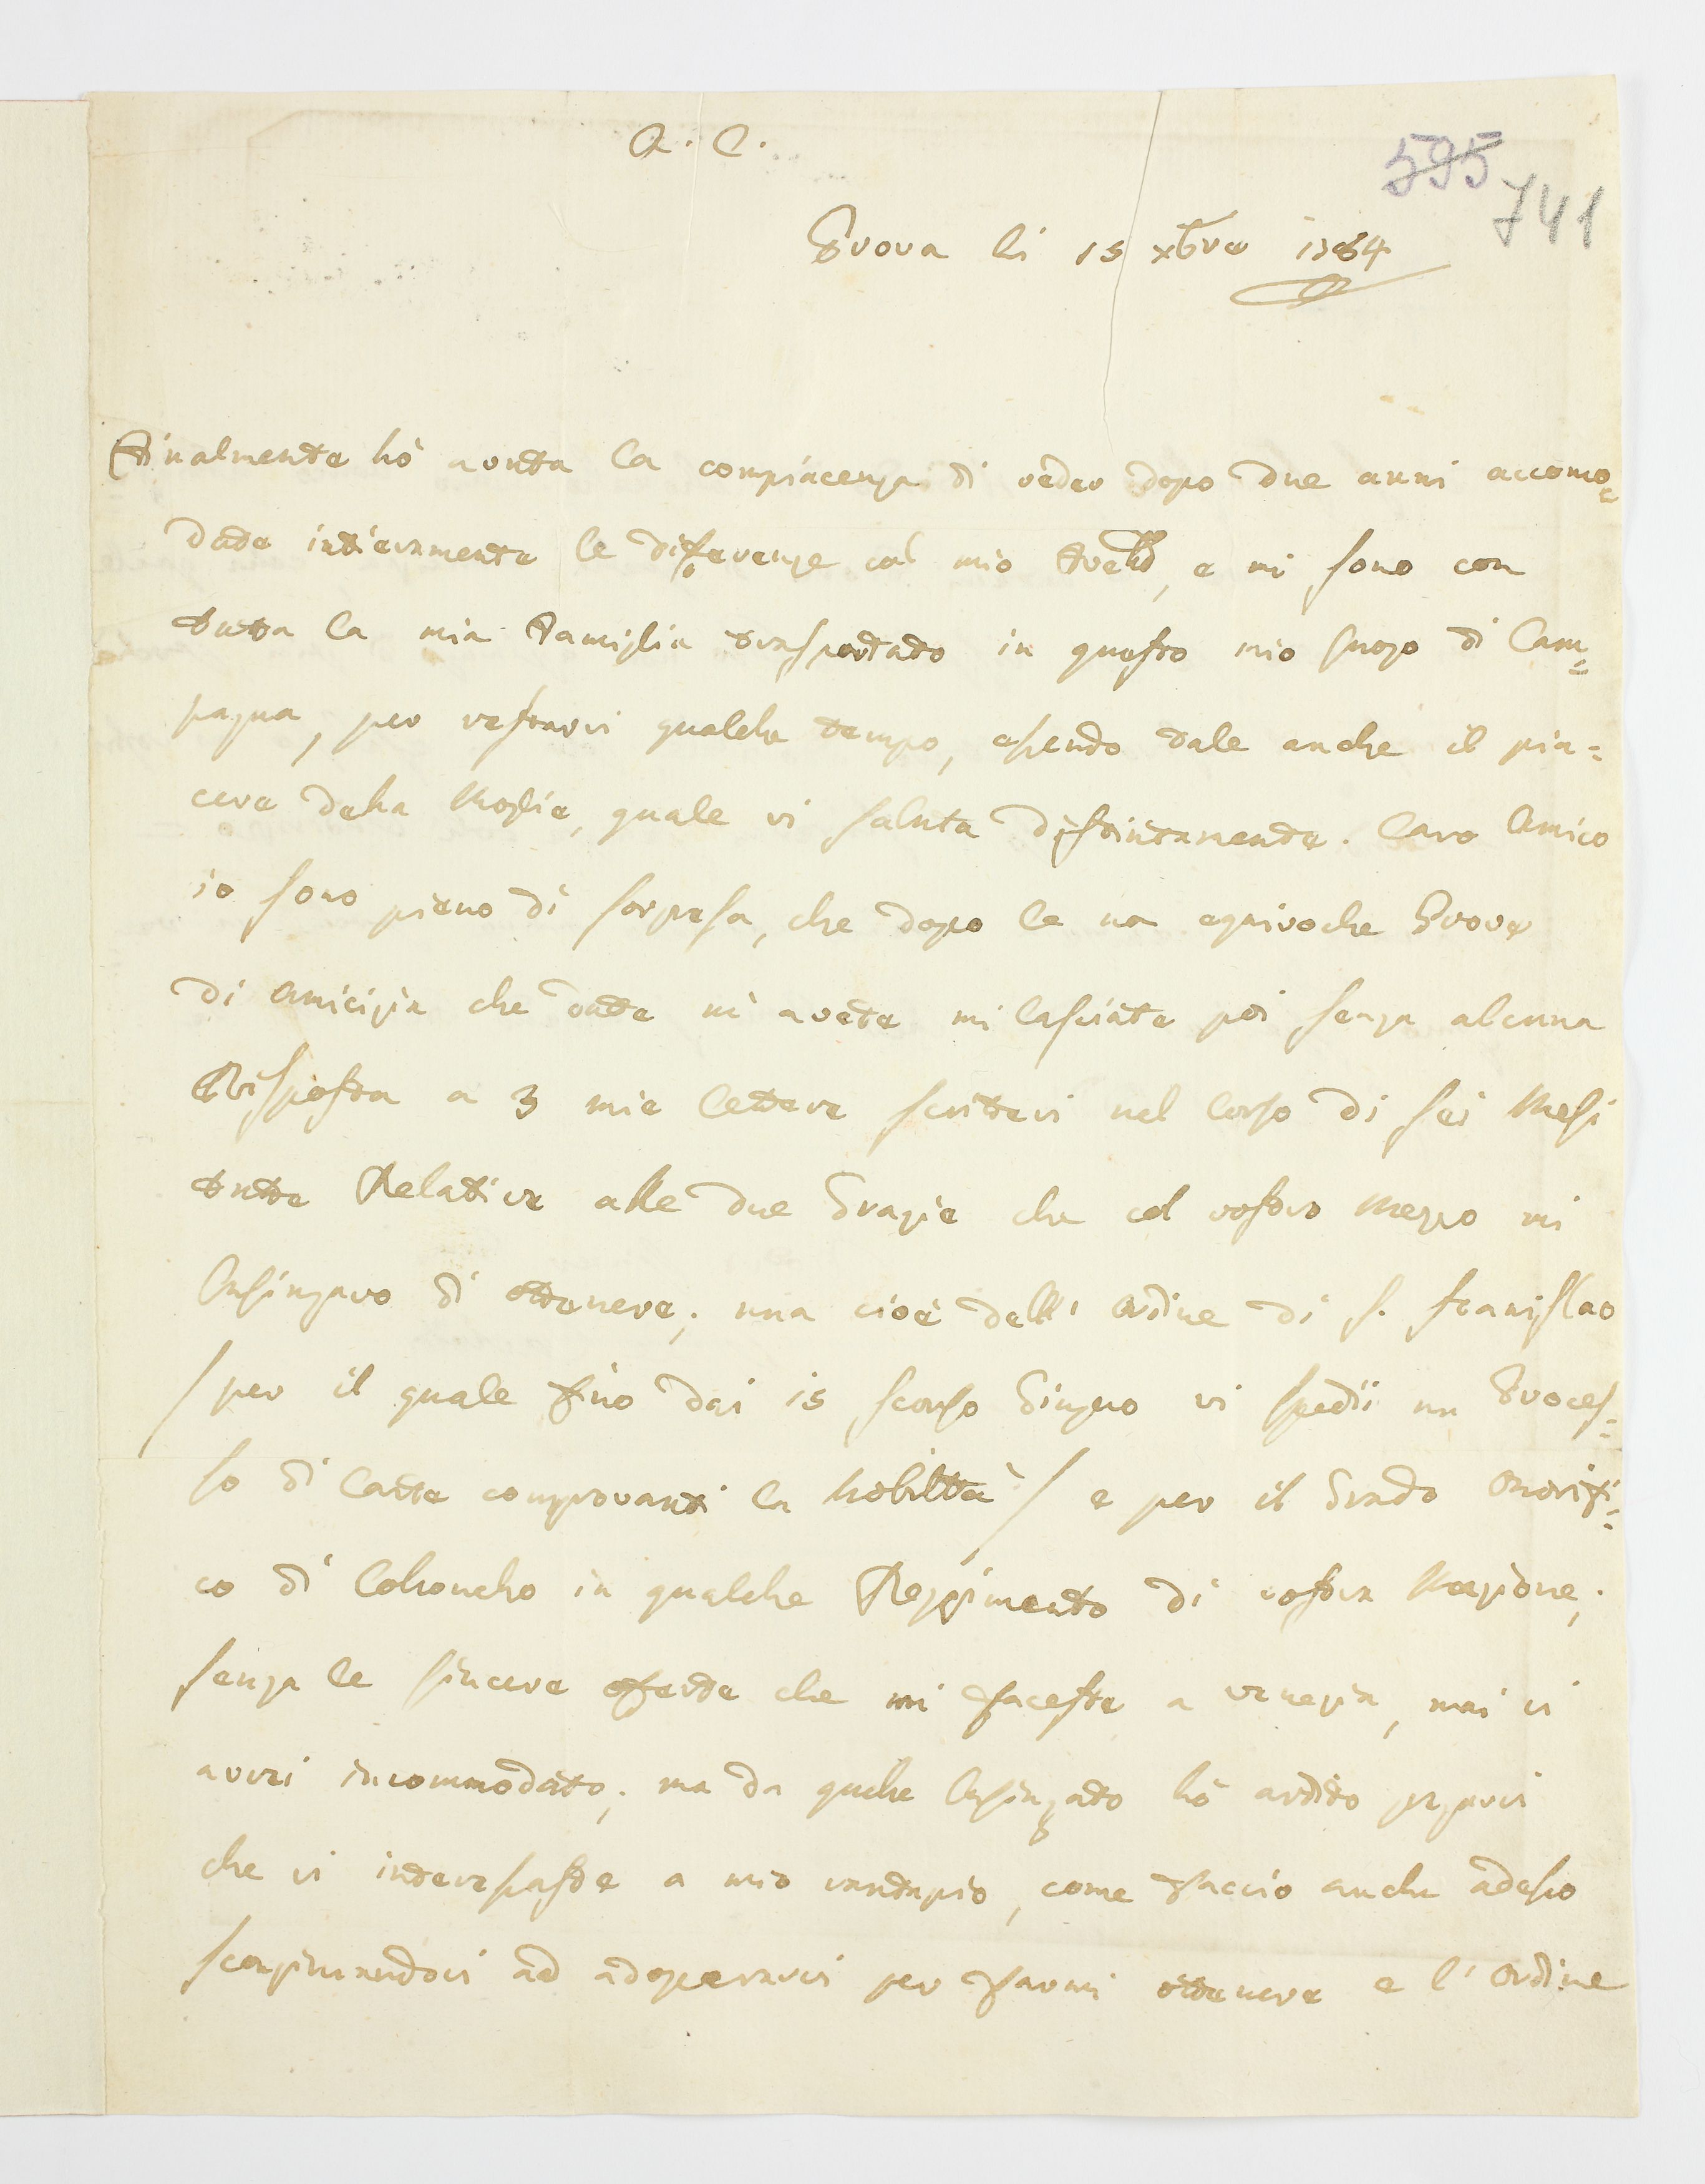 A. C.
595
741
Prova li 15 xbre 1784
Finalmente hò avuta la compiacenza di veder dopo due anni accomo=
date intieramente le diferenze col mio Fratello, e mi sono con
tutta la mia Famiglia trasportado in questo mio luogo di Cam=
pagna, per restarvi qualche tempo, essendo tale anche il pia=
cere della Moglie, quale vi saluta distintamente. Caro Amico
io sono pieno di sorpresa, che dopo le na equivoche Prove
di amicizia che date mi avete mi lasciate poi senza alcuna
Risposta a 3 mie lettere scritevi nel corso di sei Mesi
tutte Relative alle due Grazie che col vostro mezzo mi
lusingavo di ottenere; una cioè dell' ordine di S. Stanislao
/ per il quale fino dai 15 scorso Giugno vi spedii un Proces=
so di Carte comprovanti la Nobiltà / e per il Grado Onorifi=
co di Collonello in qualche Reggimento di vostra Nazione;
senza le sincere offerte che mi faceste a Venezia, mai vi
avrei incommodato; ma da quelle lusingado hò ardito pregarvi
che vi interessaste a mio vantagio, come faccio anche adesso
scongiurandovi ad adoperarvi per farmi ottenere e l' ordine